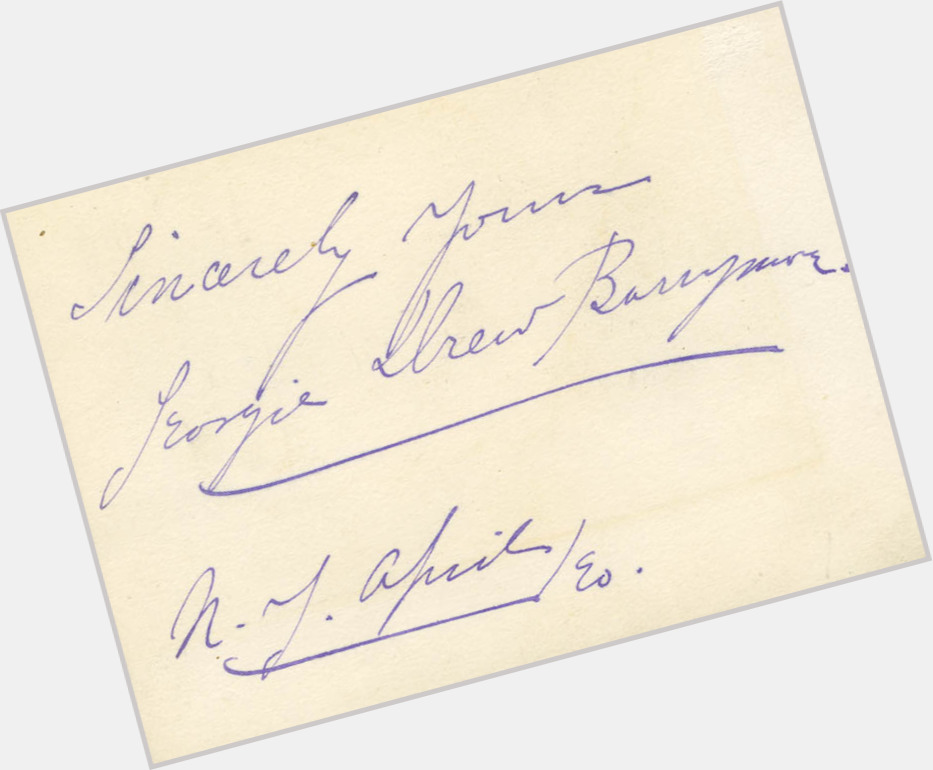 Sincerely Yours
Georgie Drew Barrymore.
N.Y. April